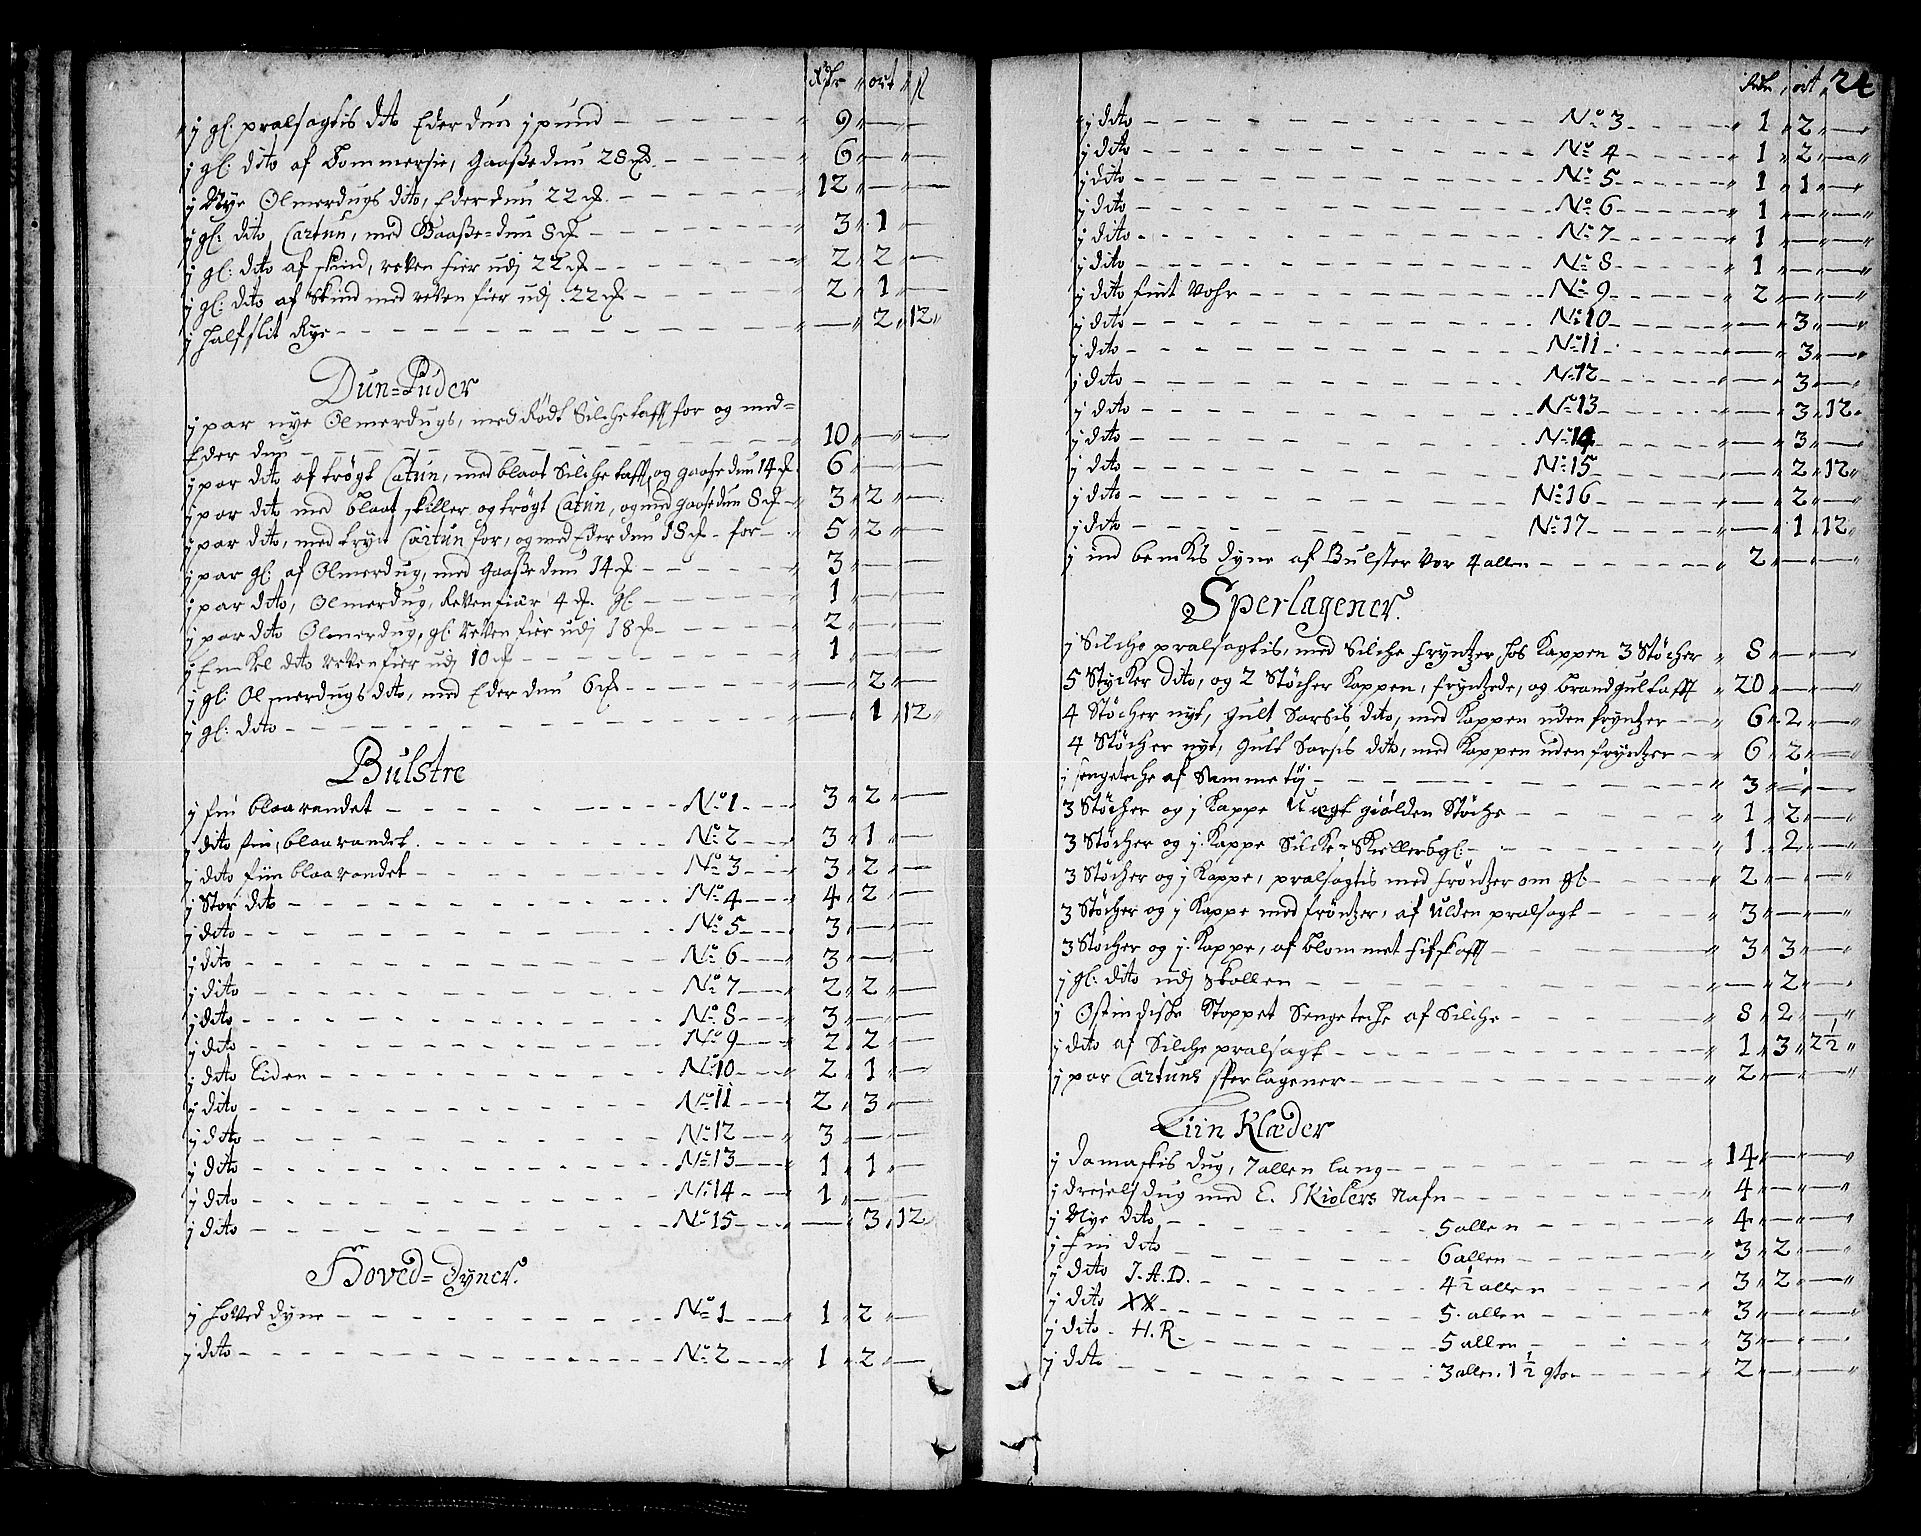 Rdr ort ß
j gl: pralsagtis dito Eder dun j pund — 9 — —
j gl: dito af Pommersie, gaasse dun 28 ℔. — 6 — —
j Nye Olmerdugs dito, Eder dun 22 ℔. — 12 — —
j gl: dito Cartun, med Gaasse-dun 8 ℔ — 3 1 —
j gl: dito af skind, reven fier udj 22 ℔ — 2 2 —
j gl: dito af Skind med reven fier udj 22 ℔ — 2 1 —
j half slit Rye — — 2 12
Dun-Puder
j par nye Olmerdugs, med Rödt Silchetafft for og med
Eder dun — 10 — —
j par dito af trøgt Catun, med blaat Silche tafft, og gaase dun 14 ℔. 6 — —
j par dito med blaat skiller og trøgt Catun, og med gaase dun 8 ℔ — 3 2 —
j par dito, med tryct Cartun for, og med Eder dun 18 ℔ for — 5 2 —
j par gl: af Olmerdug, med gaasse dun 14 ℔ — 3 — —
j par dito, Olmerdug, Reven fiær 4 ℔. gl: — 1 — —
j par dito Olmerdug, gl: reven fier udj 18 ℔ — 2 — —
j Enkel dito reven fier udj 10 ℔ — 1 — —
j gl: Olmerdugs dito, med Eder dun 6 ℔ — — 2 —
j gl: dito — — 1 12
Bulstre
j fin blaarandet — No 1 — 3 2 —
j dito fin, blaarandet. — No 2 — 3 1 —
j dito fiin blaarandet — No 3 — 3 2 —
j Stor dito — No 4 — 4 2 —
j dito — No 5 — 3 — —
j dito — No 6 — 3 — —
j dito — No 7 — 2 2 —
j dito — No 8 — 3 — —
j dito — No 9 — 2 2 —
j dito liden — No 10 — 2 1 —
j dito — No 11 — 2 3 —
j dito — No 12 — 3 — —
j dito — No 13 — 1 1 —
j dito — No 14 — 1 — —
j dito — No 15 — — 3 12
Hoved-Dyner.
j hoved dyne — No 1 — 1 2 —
j dito — No 2 — 1 2 —
Rdr ort 24
j dito — No 3 — 1 2 —
j dito — No 4 — 1 2 —
j dito — No 5 — 1 1 —
j dito — No 6 — 1 — —
j dito — No 7 — 1 — —
j dito — No 8 — 1 — —
j dito fint Vohr — No 9 — 2 — —
j dito — No 10 — — 3 —
j dito — No 11 — — 3 —
j dito — No 12 — — 3 —
j dito — No 13 — — 3 12
j dito — No 14 — — 3 —
j dito — No 15 — — 2 12
j dito — No 16 — — 2 —
j dito — No 17 — — 1 12
j ind benkis dyne af Bulster Vor 4 allen — 2 — —
Sperlagener.
j Silche pralsagtis, med Silche fryntzer hos Kappen 3 Støcher 8 — —
5 Stycker dito, og 2 Støcher Kappen, fryntzede, og brandgul tafft 20 — —
4 Støcher nyt, gult Sarsis dito, med Kappen uden fryntzer — 6 2 —
4 Støcher nyt, gult Sarsis dito, med Kappen uden fryntzer — 6 2 —
j sengeteche af Samme tøj — 3 — —
3 Støcher og j Kappe giølden Støche — 1 2 —
3 Støcher og j Kappe Silcke Skillersgl: — 1 2 —
3 Støcher og j Kappe, pralsagtis med fröntzer om gl: — 2 — —
3 Støcher og j Kappe med fröntzer, af Ulden pralsagt — 3 — —
3 Støcher og j Kappe, af blommet — 3 3 —
j gl: dito udj Skollen — — 2 —
j Ostindische Stoppet Sengeteche af Silche — 8 2 —
j dito af Silche pralsagt — 1 3 2½
j par Cartuns sperlagener — 2 — —
Liin Klæder
j Damaskis dug, 7 allen lang — 14 — —
j dreiels dug med E. Skiolers Nafn — 4 — —
j Nye dito — 5 allen — 4 — —
j fin dito — 6 allen — 3 2 —
j dito J.A.D. — 4½ allen — 3 2 —
j dito XX — 5 allen — 3 — —
j dito H.R. — 5 allen — 3 — —
j dito — 3 allen, 1½ qto — 2 — —